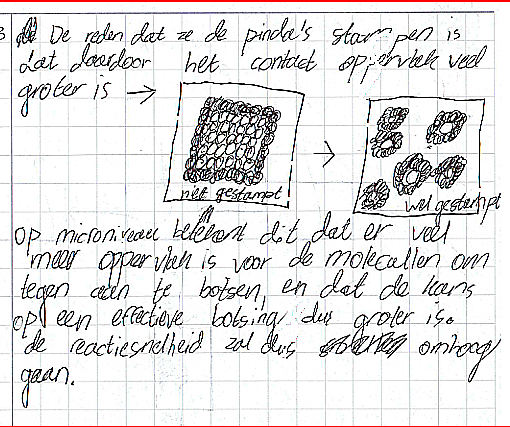 3 De reden dat ze de pinda's stampen is
dat daardoor het contact oppervlak veel
groter is →
niet gestampt
wel gestampt
op microniveau betekent dit dat er veel
meer oppervlak is voor de moleculen om
tegen aan te botsen, en dat de kans
op een effectieve botsing dus groter is.
de reactiesnelheid zal dus omhoog
gaan.